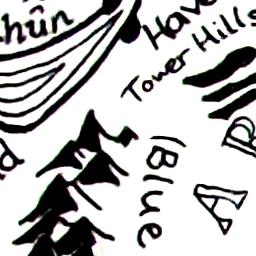 hûn
Have
Tower Hills
(Blue
A R
d